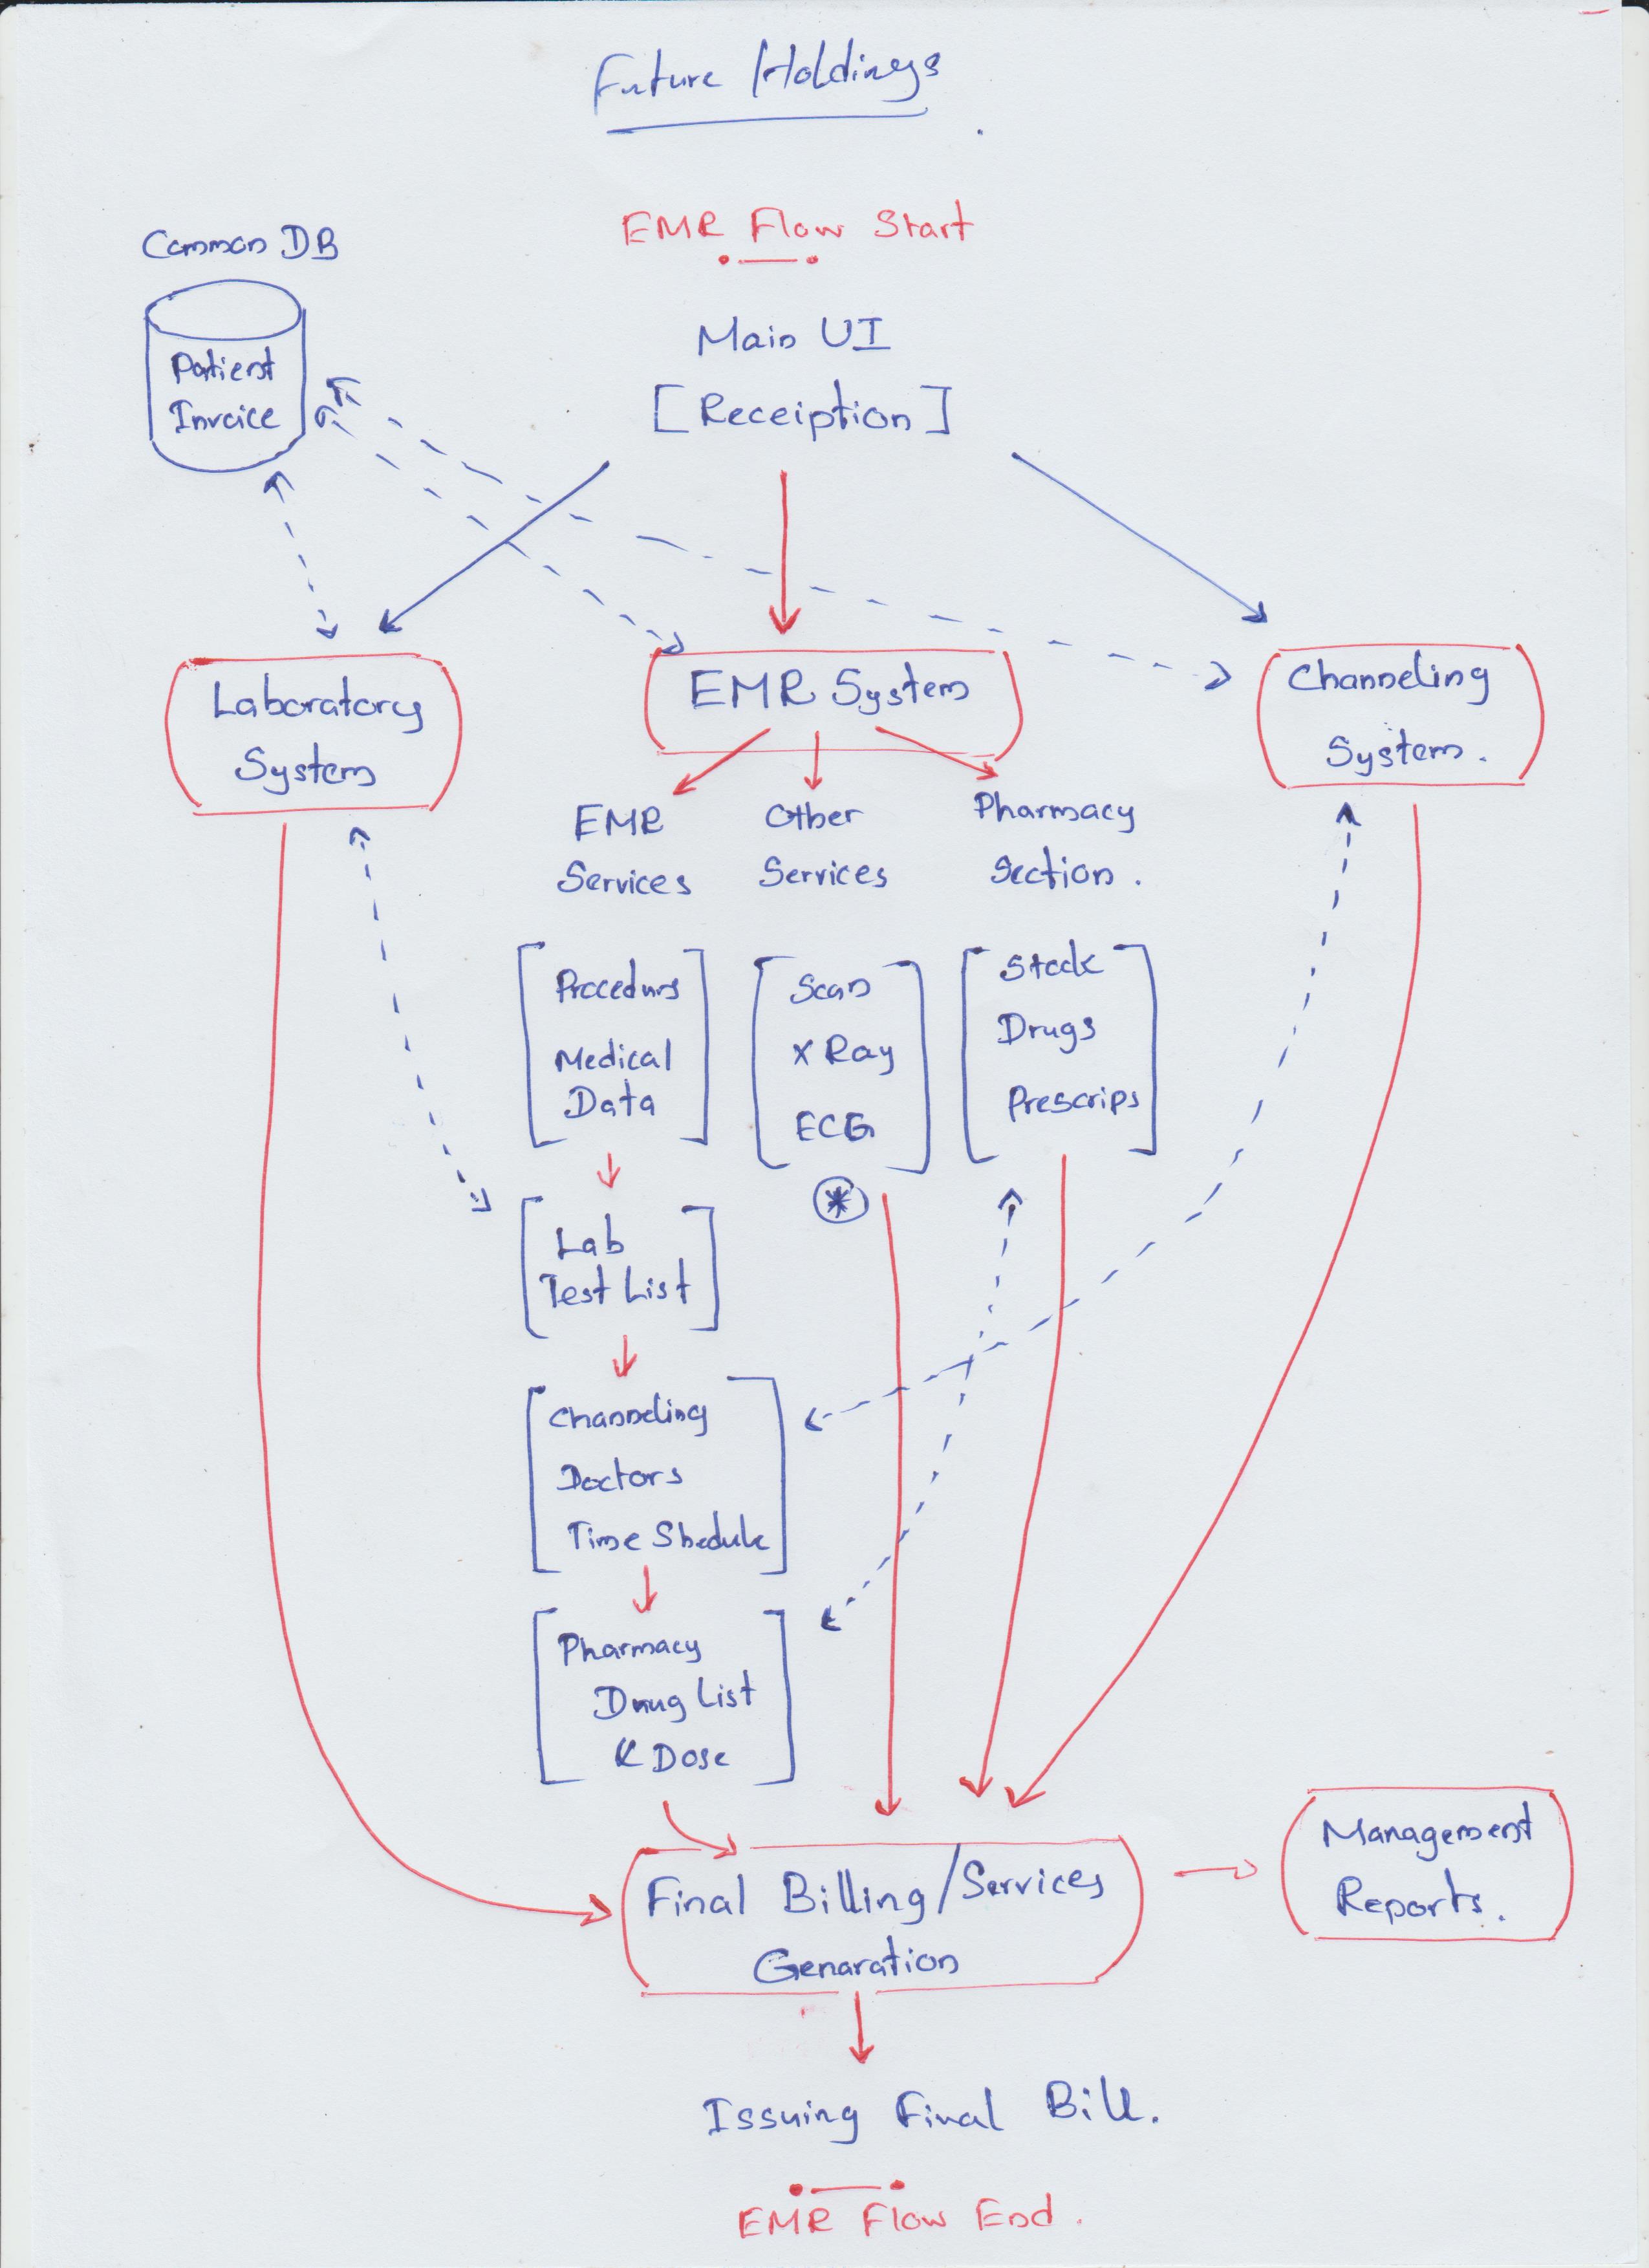 Future Holdings
EMR Flow Start
Common DB
Patient
Invoice
Main UI
[Receiption]
Laboratory
System
EMR System
Channeling
System.
EMR
Services
Other
Services
Pharmacy
Section.
Procedurs
Medical
Data
Scan
X Ray
ECG
Stock
Drugs
Prescrips
*
Lab
Test List
Channeling
Doctors
Time Shedule
Pharmacy
Drug List
& Dose
Final Billing/Services
Genaration
Management
Reports.
Issuing Final Bill.
EMR Flow End.